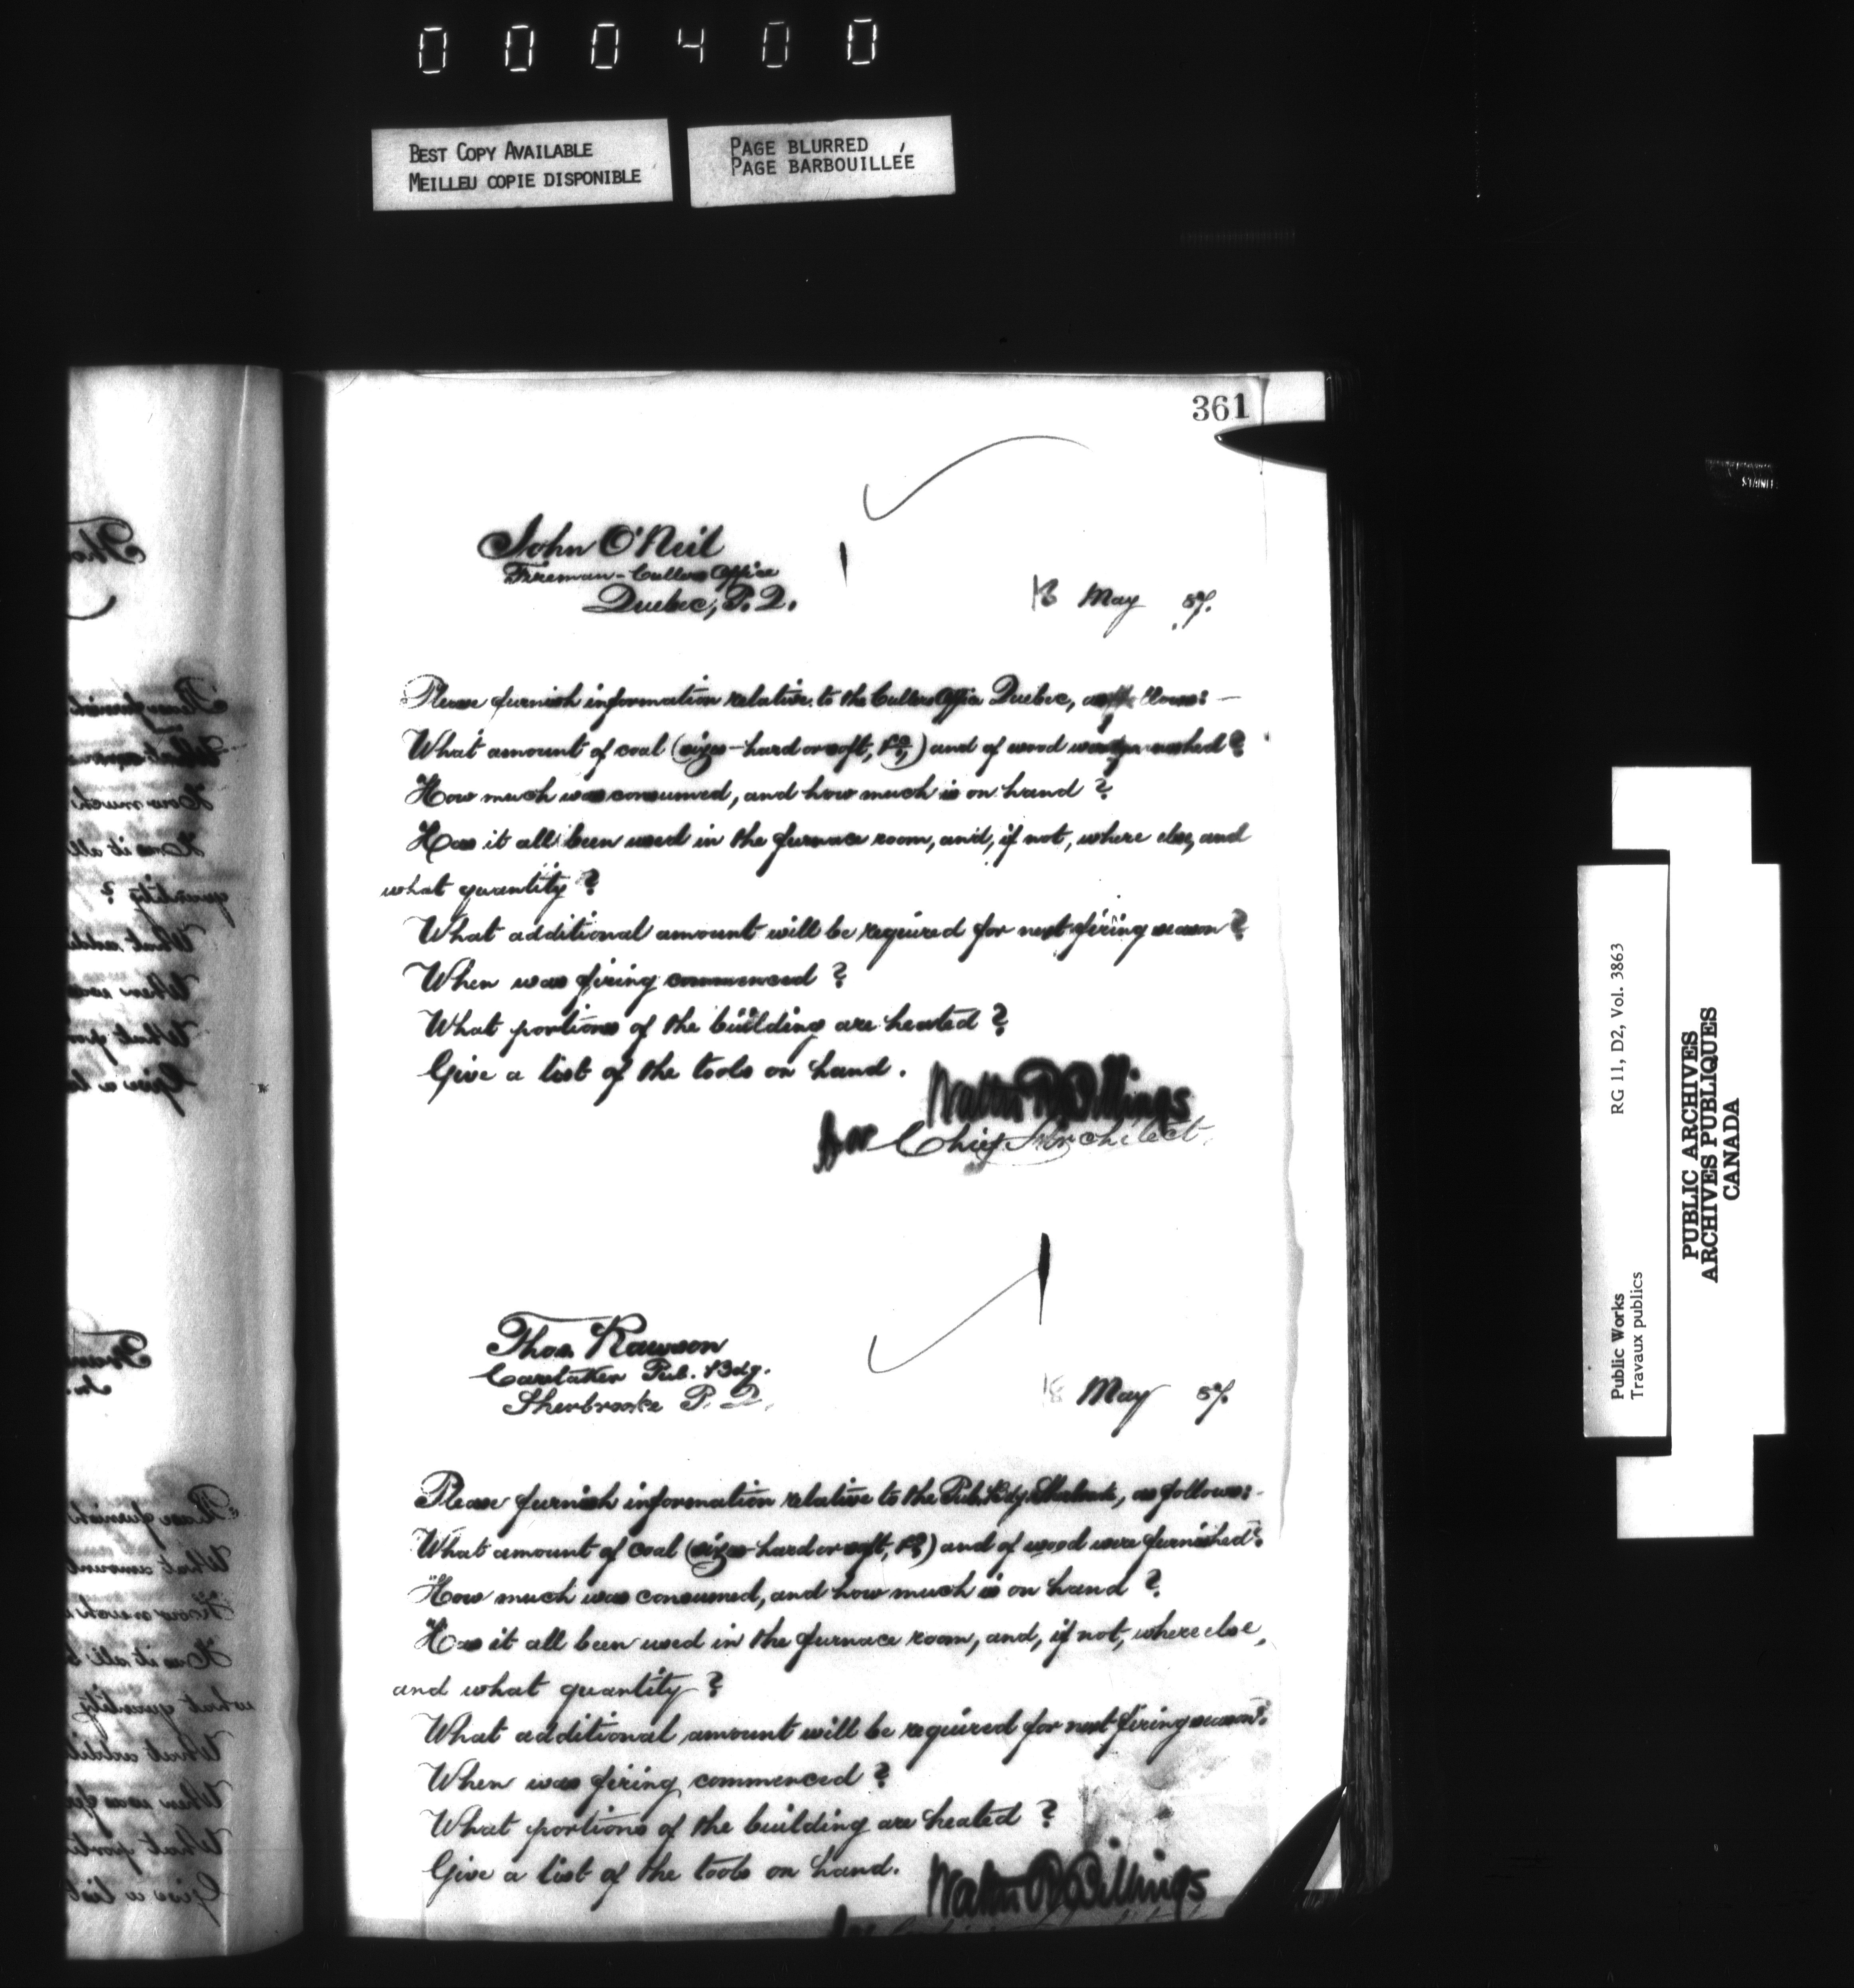 000400
BEST COPY AVAILABLE
MEILLEU COPIE DISPONIBLE
PAGE BLURRED
PAGE BARBOUILLÉE
361
John O'Neil
Fireman - Cullers Office
Quebec, P.Q.
18 May 87.
Please furnish information relative to the Cullers Office Quebec, as follows: —
What amount of coal (sizes - hard or soft, &c.,) and of wood was furnished?
How much was consumed, and how much is on hand?
Has it all been used in the furnace room, and, if not, where else, and
what quantity?
What additional amount will be required for next firing season?
When was firing commenced?
What portions of the building are heated?
Give a list of the tools on hand.
Walter R Billings
for Chief Architect.
Thos. Rawson
Caretaker Pub. Bdg.
Sherbrooke P.Q.
18 May 87.
Please furnish information relative to the Pub. Bdg. Sherbrooke, as follows: -
What amount of coal (sizes - hard or soft, &c) and of wood were furnished?
How much was consumed, and how much is on hand?
Has it all been used in the furnace room, and, if not, where else,
and what quantity?
What additional amount will be required for next firing season?
When was firing commenced?
What portions of the building are heated?
Give a list of the tools on hand.
Walter R Billings
for
Public Works
Travaux publics
RG 11, D2, Vol. 3863
PUBLIC ARCHIVES
ARCHIVES PUBLIQUES
CANADA